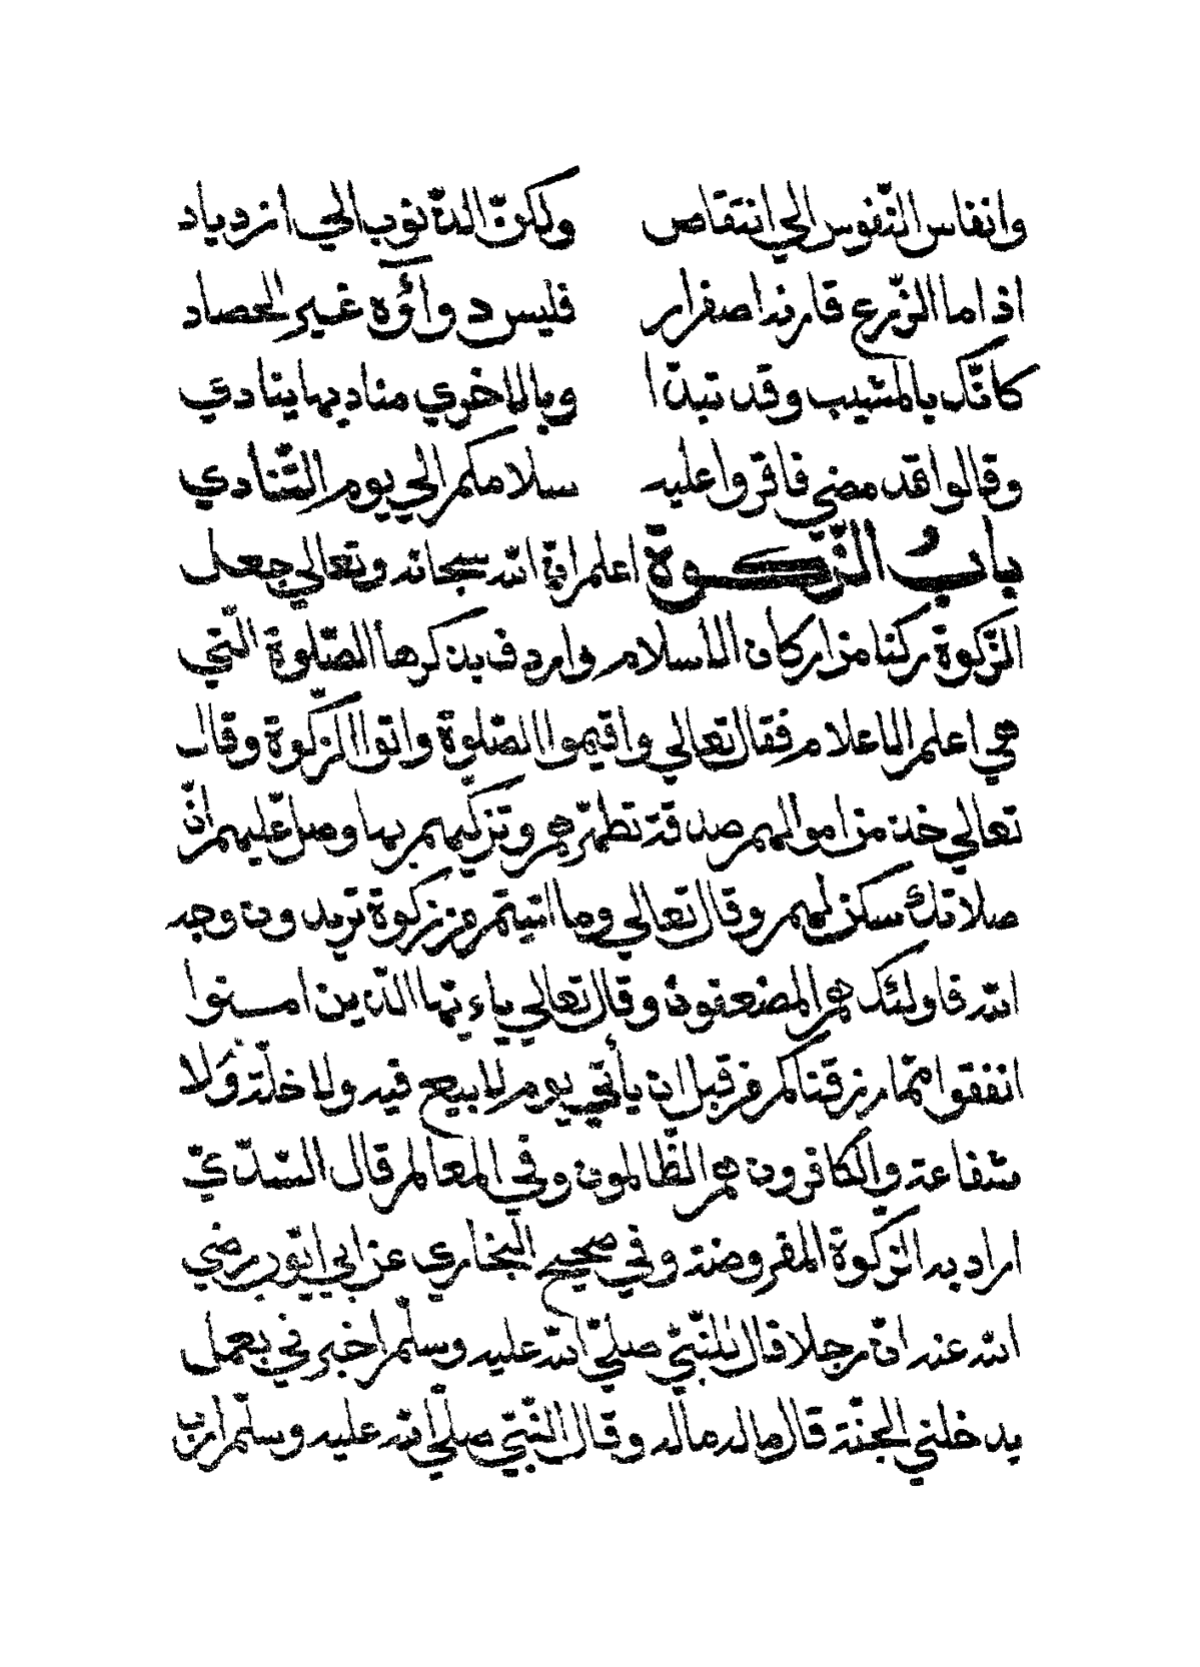 وانفاس النّفوس الي انتقاص ولكنّ الذّنوب الي ازدياد
اذا ما الزّرع قارنه اصفرار فليس دوآؤه غير الحصاد
كانّك بالمشيب وقد تبدّا وبالاخري مناديها ينادي
وقالوا قد مضي فاقروا عليه سلامكم الي يوم التّنادي
باب الزّكوة اعلم انّ الله سبحانه وتعالي جعل
الزّكوة ركنا من اركان الاسلام واردف بذكرها الصّلوة الّتي
هي اعلم الاعلام فقال تعالي واقيموا الصّلوة واتوا الزّكوة وقال
تعالي خذ من اموالهم صدقة تطهّرهم وتزكّيهم بها وصلّ عليهم انّ
صلاتك سكن لهم وقال تعالي وما اتيتم من زكوة تريدون وجه
الله فاولئك هم المضعفون وقال تعالي ياءيّها الّذين امنوا
انفقوا ممّا رزقناكم من قبل ان يأتي يوم لا بيع فيه ولا خلّة وّلا
شفاعة والكافرون هم الظّالمون وفي المعالم قال السّدّيّ
اراد به الزّكوة المفروضة وفي صحيح البخاري عن ابي ايّوب رضي
الله عنه انّ رجلا قال للنّبيّ صلّي الله عليه وسلّم اخبرني بعمل
يدخلني الجنّة قال ماله ماله وقال النّبيّ صلّي الله عليه وسلّم ارب